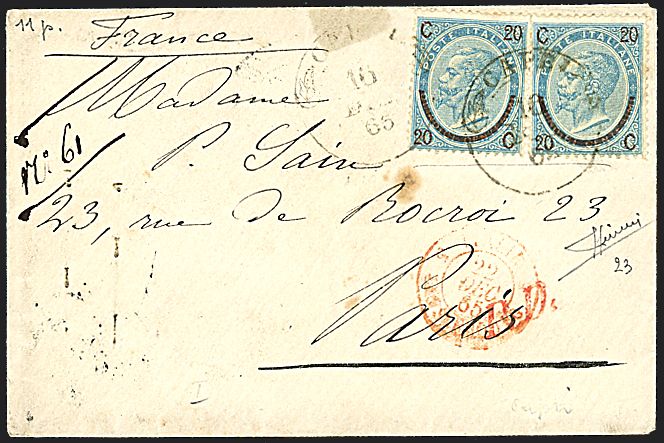 11 p.
France
Madame
P. Sain
23, rue de Rocroi 23
Paris
No 61
C 20
POSTE ITALIANE
20 C
C 20
POSTE ITALIANE
20 C
16
65
22
DEC
65
P.D.
23
I
Capri